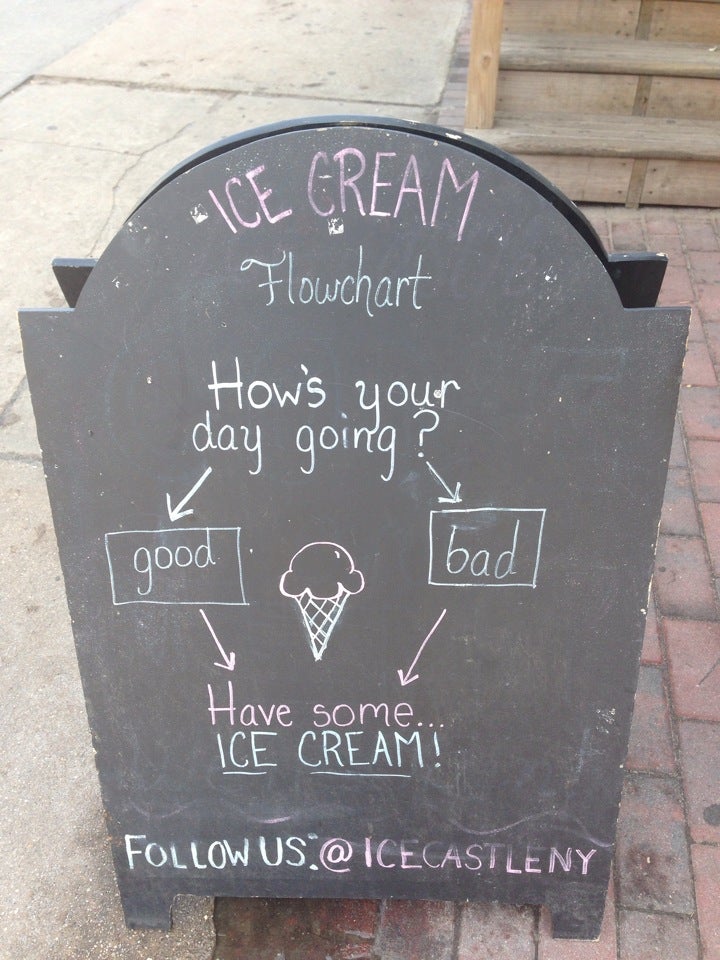 ICE CREAM
Flowchart
How's your
day going?
good
bad
Have some...
ICE CREAM!
FOLLOW US: @ICECASTLENY